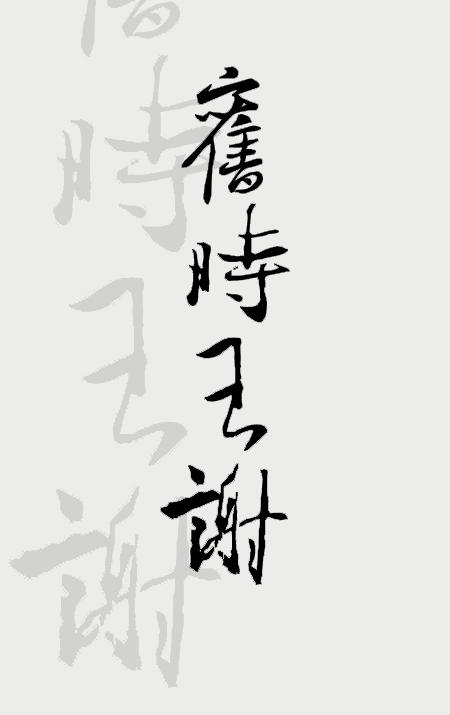 舊時王謝
舊時王謝